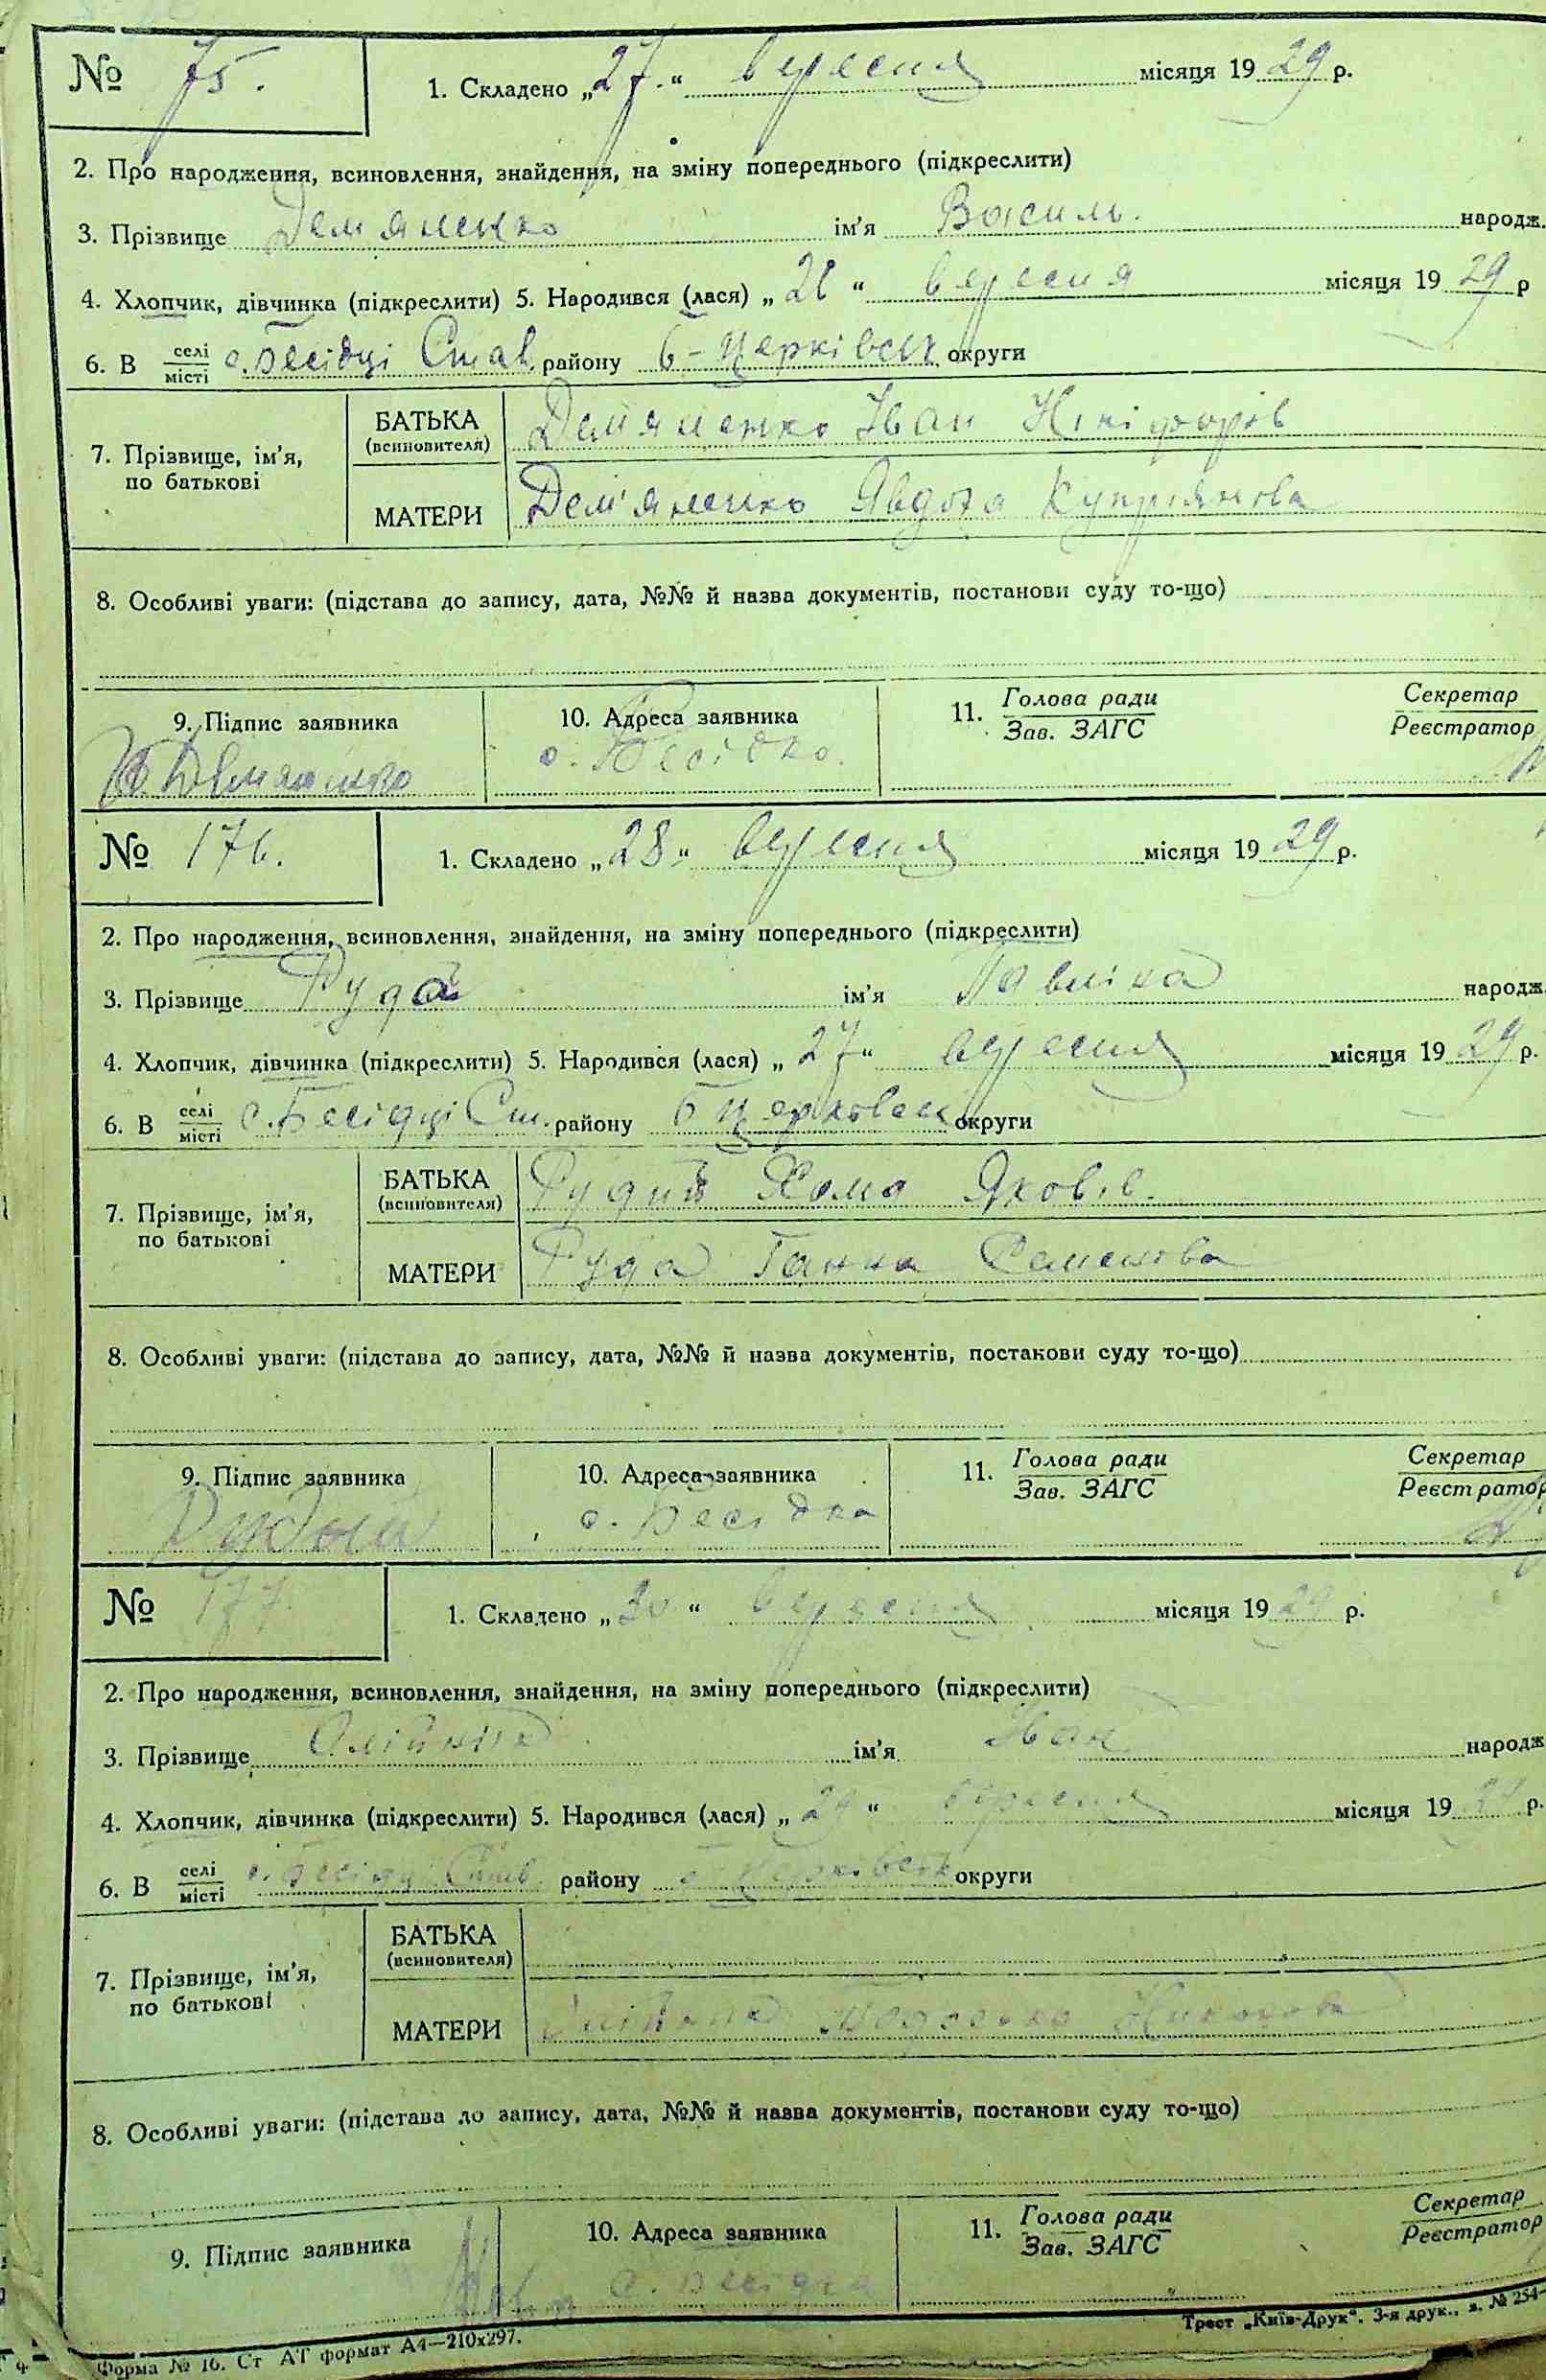 № 75. 1. Складено „27.“ вересня місяця 1929 р.
2. Про народження, всиновлення, знайдення, на зміну попереднього (підкреслити)
3. Прізвище Демяненко ім'я Василь. народж.
4. Хлопчик, дівчинка (підкреслити) 5. Народився (лася) „26“ вересня місяця 1929 р
6. В селі/місті с. Бесідці Став. району Б-Церківськ округи
7. Прізвище, ім'я, по батькові
БАТЬКА (всиновителя) Дем'яненко Іван Нікіфорів
МАТЕРИ Дем'яненко Явдоха Купріянова
8. Особливі уваги: (підстава до запису, дата, №№ й назва документів, постанови суду то-що)
9. Підпис заявника 10. Адреса заявника 11. Голова ради Секретар
Зав. ЗАГС Реєстратор
с. Бесідка.
№ 176. 1. Складено „28“ вересня місяця 1929 р.
2. Про народження, всиновлення, знайдення, на зміну попереднього (підкреслити)
3. Прізвище Руда ім'я Павліна народж.
4. Хлопчик, дівчинка (підкреслити) 5. Народився (лася) „27“ вересня місяця 1929 р.
6. В селі/місті с. Бесідці Ст. району Б Церковськ округи
7. Прізвище, ім'я, по батькові
БАТЬКА (всиновителя) Рудий Хома Яковів.
МАТЕРИ Руда Ганна Семенова
8. Особливі уваги: (підстава до запису, дата, №№ й назва документів, постанови суду то-що)
9. Підпис заявника 10. Адреса заявника 11. Голова ради Секретар
Зав. ЗАГС Реєстратор
с. Бесідка
№ 177. 1. Складено „30“ вересня місяця 1929 р.
2. Про народження, всиновлення, знайдення, на зміну попереднього (підкреслити)
3. Прізвище Олійник ім'я Іван народж
4. Хлопчик, дівчинка (підкреслити) 5. Народився (лася) „29“ вересня місяця 1929 р.
6. В селі/місті с. Бесідці Став. району Б Церківськ округи
7. Прізвище, ім'я, по батькові
БАТЬКА (всиновителя)
МАТЕРИ
8. Особливі уваги: (підстава до запису, дата, №№ й назва документів, постанови суду то-що)
9. Підпис заявника 10. Адреса заявника 11. Голова ради Секретар
Зав. ЗАГС Реєстратор
с. Бесідка
Форма № 16. Ст АТ формат А4—210х297. Трест „Київ-Друк“. 3-я друк., з. № 254-